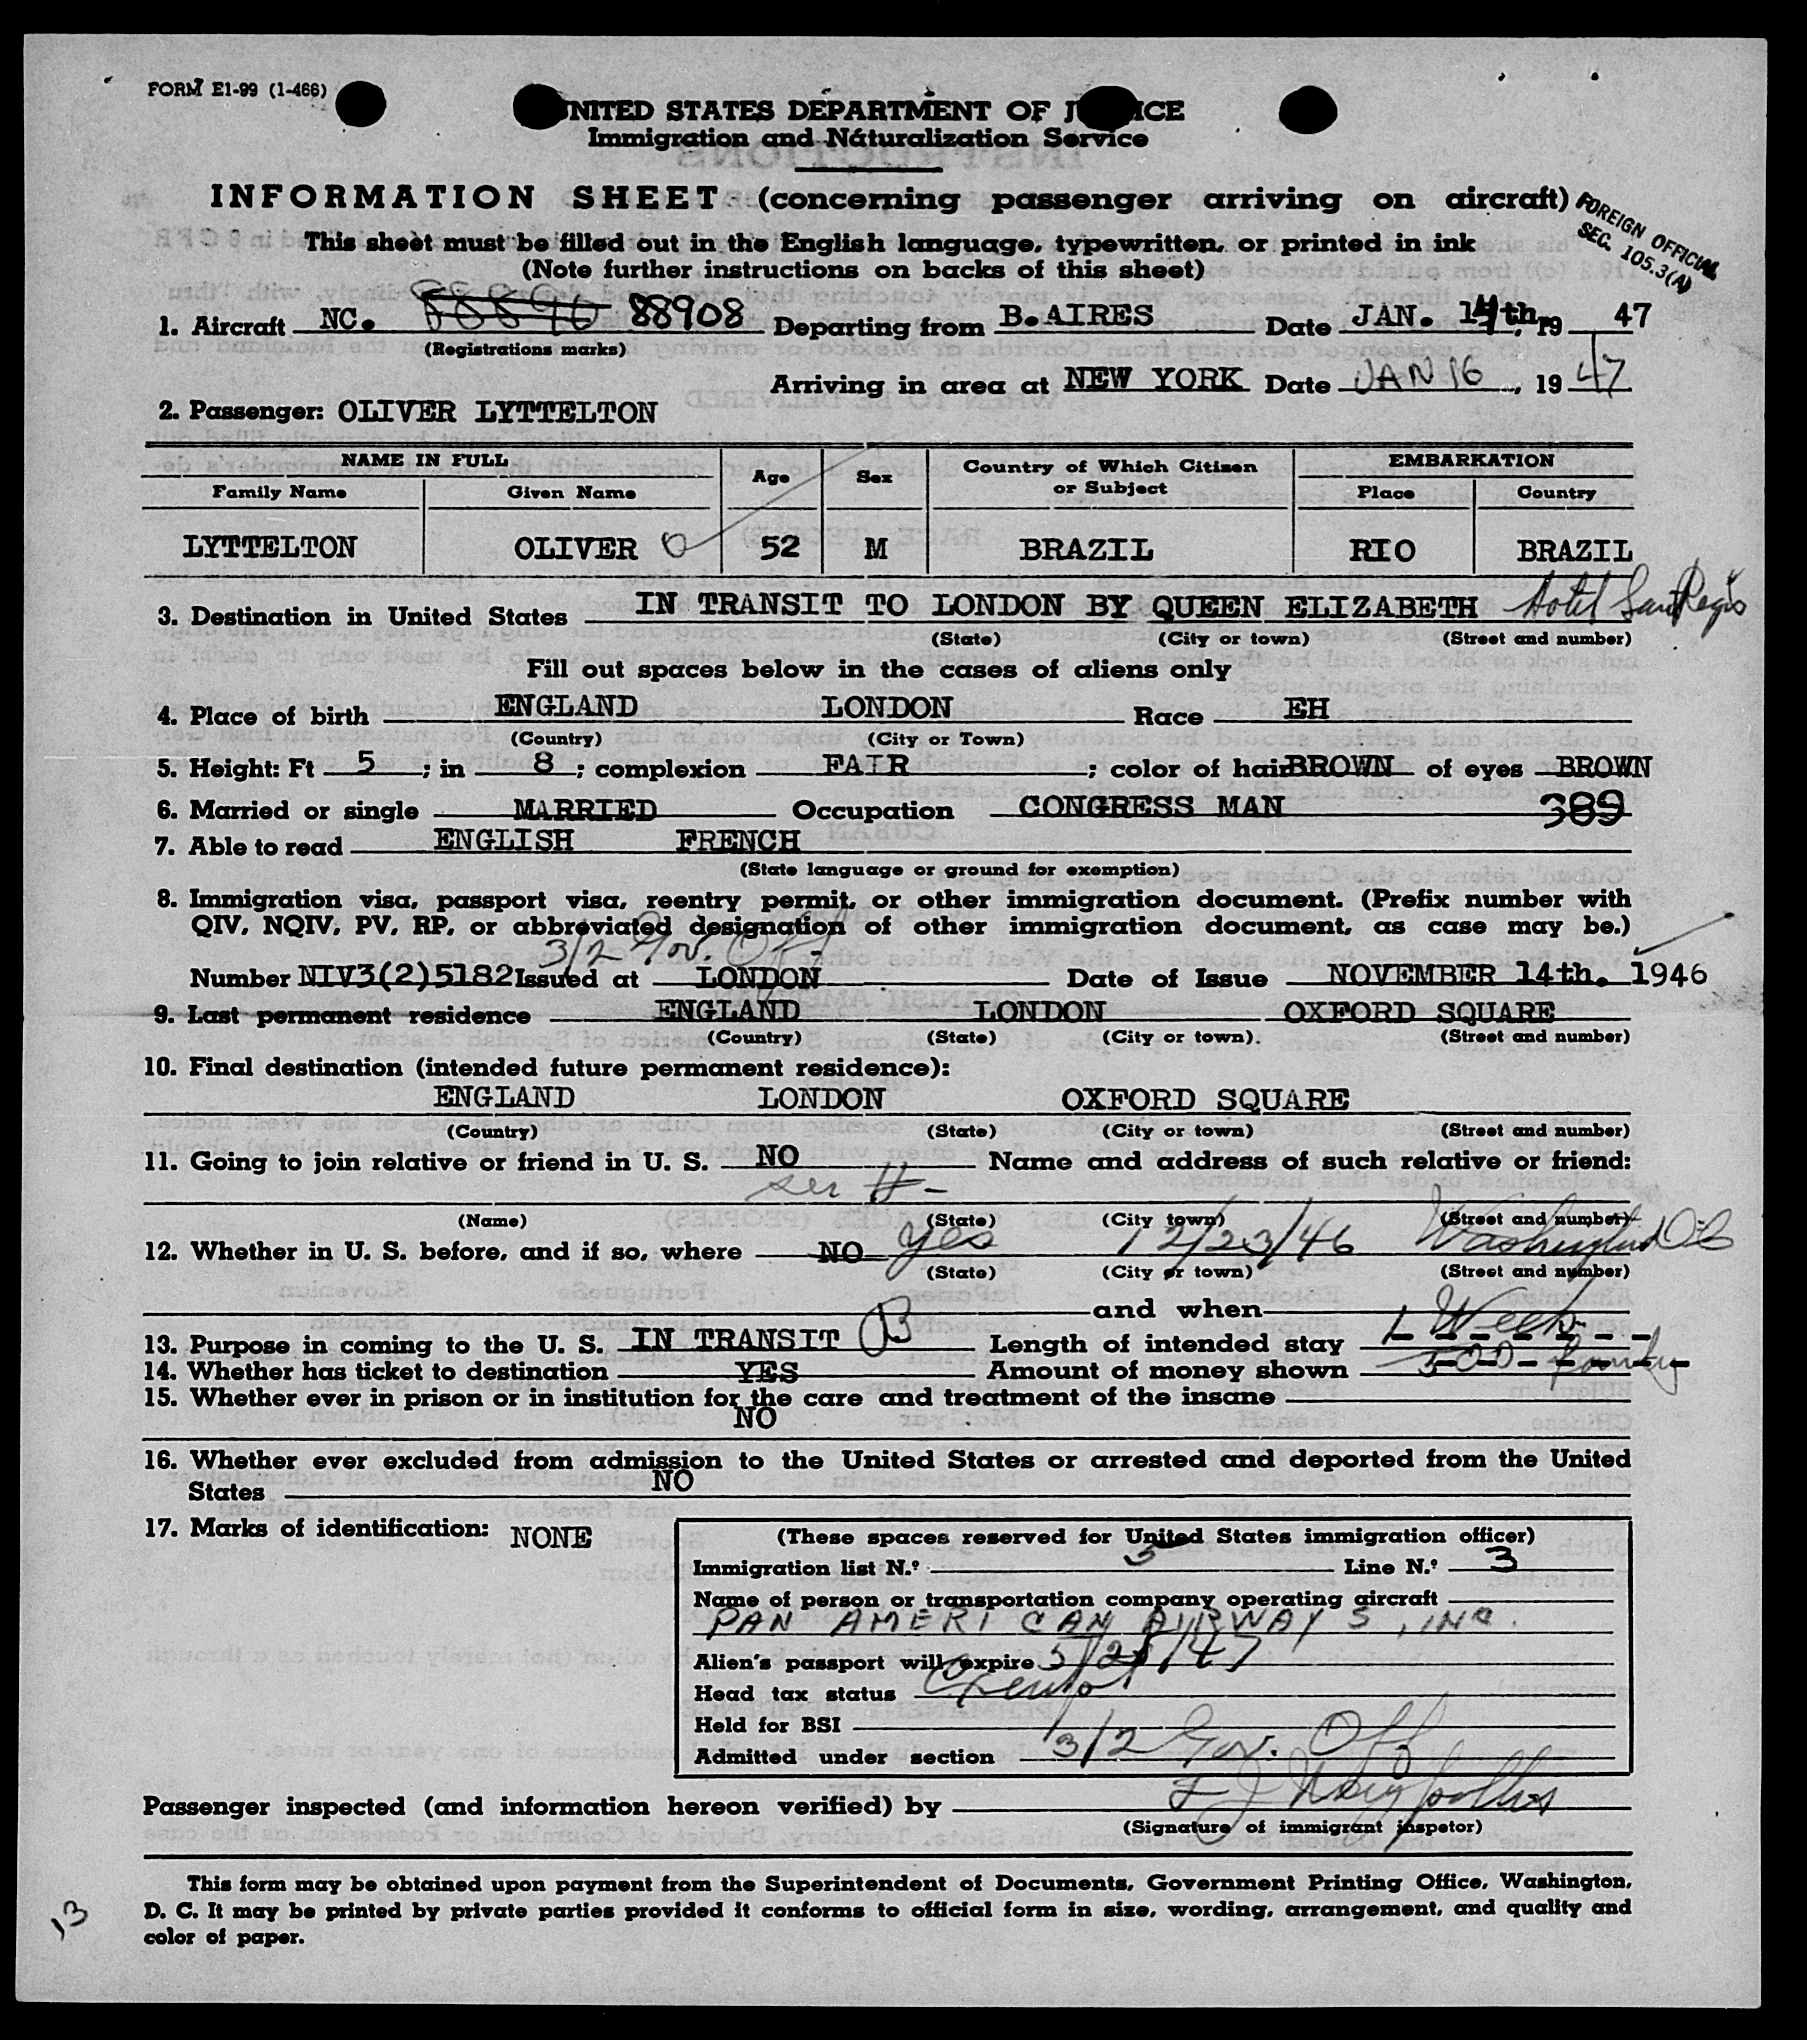 FORM E1-99 (1-466)
UNITED STATES DEPARTMENT OF JUSTICE
Immigration and Naturalization Service
INFORMATION SHEET (concerning passenger arriving on aircraft)
FOREIGN OFFICIAL
SEC. 105.3(A)
This sheet must be filled out in the English language, typewritten, or printed in ink
(Note further instructions on backs of this sheet)
1. Aircraft NC. 88908 Departing from B.AIRES Date JAN. 14th, 19 47
(Registrations marks)
Arriving in area at NEW YORK Date JAN 16, 19 47
2. Passenger: OLIVER LYTTELTON
NAME IN FULL Age Sex Country of Which Citizen or Subject EMBARKATION
Family Name Given Name Place Country
LYTTELTON OLIVER O 52 M BRAZIL RIO BRAZIL
3. Destination in United States IN TRANSIT TO LONDON BY QUEEN ELIZABETH Hotel Saint Regis
(State) (City or town) (Street and number)
Fill out spaces below in the cases of aliens only
4. Place of birth ENGLAND LONDON Race EH
(Country) (City or Town)
5. Height: Ft 5; in 8; complexion FAIR; color of hair BROWN of eyes BROWN
6. Married or single MARRIED Occupation CONGRESS MAN 389
7. Able to read ENGLISH FRENCH
(State language or ground for exemption)
8. Immigration visa, passport visa, reentry permit, or other immigration document. (Prefix number with
QIV, NQIV, PV, RP, or abbreviated designation of other immigration document, as case may be.)
3/2 Gov. Off
Number NIV3(2)5182 Issued at LONDON Date of Issue NOVEMBER 14th. 1946
9. Last permanent residence ENGLAND LONDON OXFORD SQUARE
(Country) (State) (City or town). (Street and number)
10. Final destination (intended future permanent residence):
ENGLAND LONDON OXFORD SQUARE
(Country) (State) (City or town) (Street and number)
11. Going to join relative or friend in U. S. NO Name and address of such relative or friend:
(Name) (State) (City town) (Street and number)
12. Whether in U. S. before, and if so, where NO yes 12/23/46 Washington D.C
(State) (City or town) (Street and number)
and when
13. Purpose in coming to the U. S. IN TRANSIT B Length of intended stay 1 Week
14. Whether has ticket to destination YES Amount of money shown 500
15. Whether ever in prison or in institution for the care and treatment of the insane
NO
16. Whether ever excluded from admission to the United States or arrested and deported from the United
States NO
17. Marks of identification: NONE
(These spaces reserved for United States immigration officer)
Immigration list N.º 5 Line N.º 3
Name of person or transportation company operating aircraft
PAN AMERICAN AIRWAYS, INC.
Alien's passport will expire
Head tax status Exempt
Held for BSI
Admitted under section 3/2 Gov. Off
Passenger inspected (and information hereon verified) by
(Signature of immigrant inspetor)
This form may be obtained upon payment from the Superintendent of Documents, Government Printing Office, Washington,
D. C. It may be printed by private parties provided it conforms to official form in size, wording, arrangement, and quality and
color of paper.
13